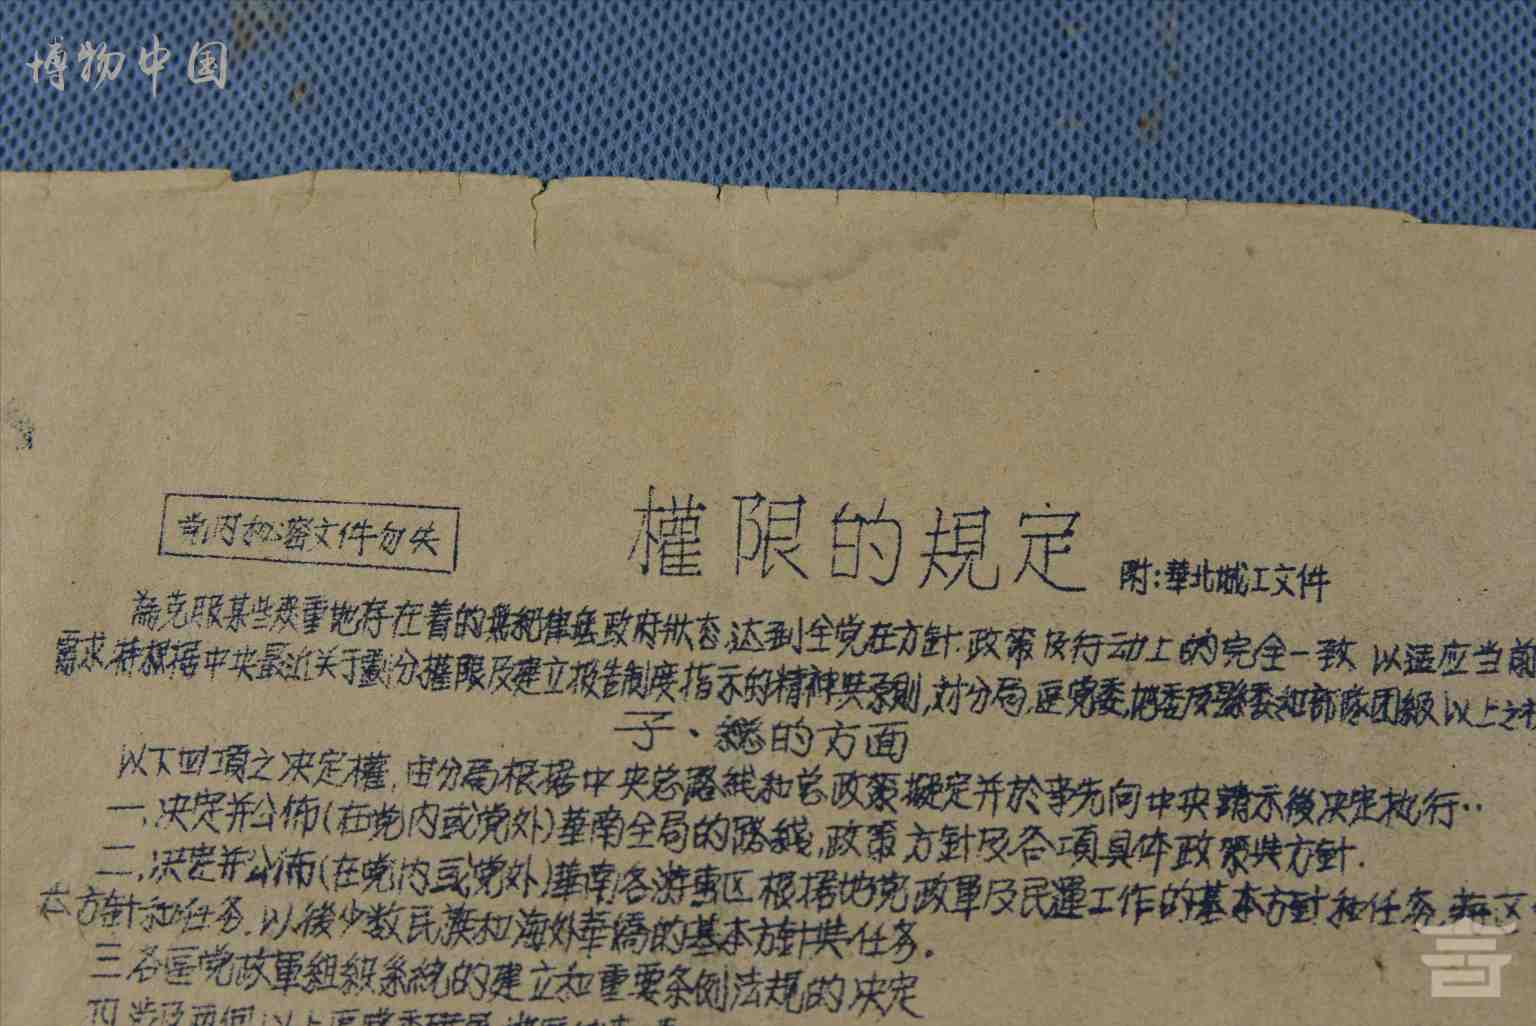 博物中国
党内秘密文件勿失
權限的規定
附:華北城工文件
為克服某些嚴重地存在着的無紀律無政府狀态,达到全党在方針.政策及行动上的完全一致 以适应当前
需求,特根据中央最近关于劃分權限及建立报告制度指示的精神與原則,对分局,區党委,地委及縣委和部隊团級以上之
子、總的方面
以下四項之决定權,由分局根据中央总路线和总政策擬定并於事先向中央請示後决定执行..
一,决定并公佈(在党内或党外)華南全局的路綫,政策方針及各項具体政策與方針.
二,决定并公佈(在党内或党外)華南各游击区根据地党政軍及民運工作的基本方針和任务,
本方針和任务.以後少数民族和海外華僑的基本方針與任务。
三各區党政軍組織系統的建立和重要条例法規的决定
四涉及两個以上區党委